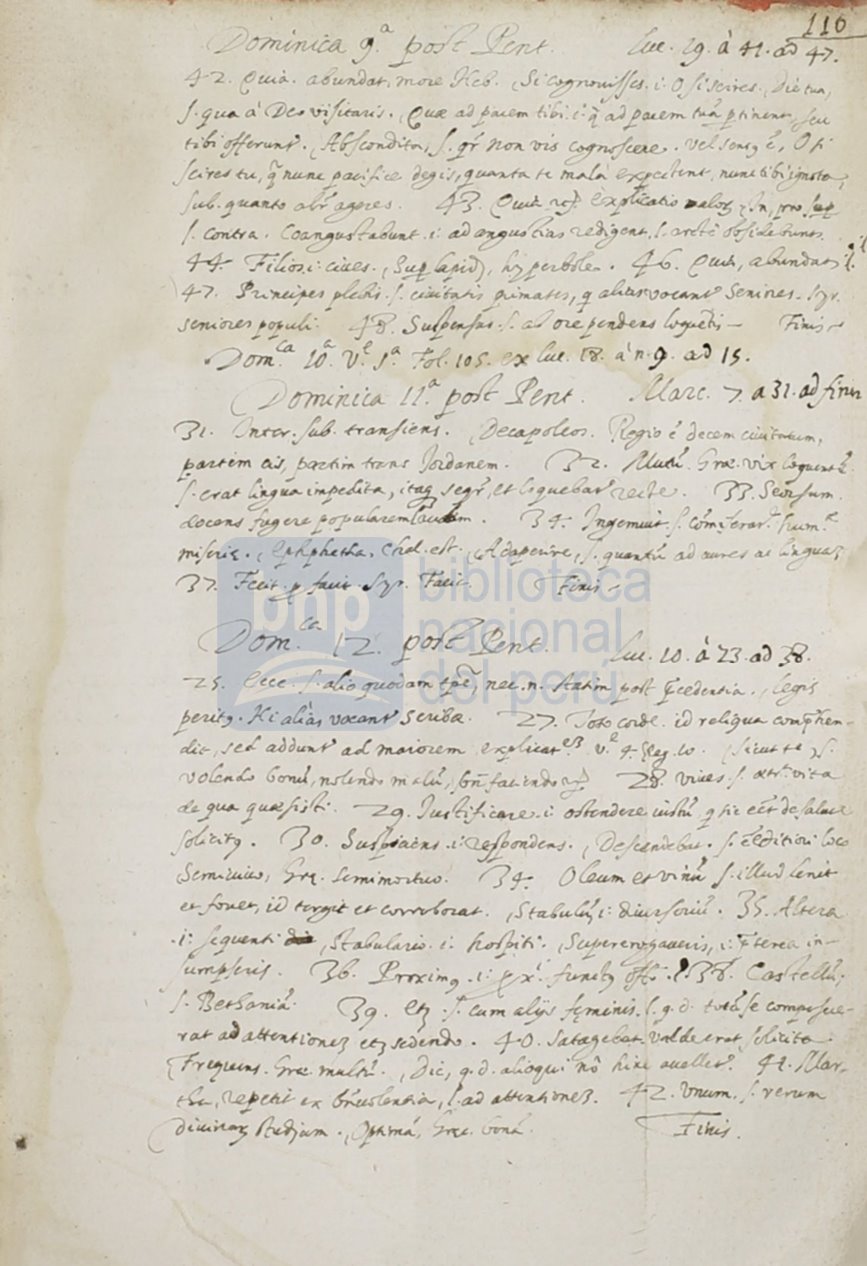 116
Dominica 9.ª post Pent. Luc. 19. à 41. ad 47.
42. Quia. abundat, more Heb. , Si cognouisses. i. O si scires. , Die tua,
s. qua à Deo visitaris. , Quæ ad pacem tibi. i. q̃ ad pacem tuã ptinent, seu
tibi offerunt. , Abscondita, s. qr̃ non vis cognoscere. vel sensq ẽ, O si
scires tu, q̃ nunc pacifice degis, quanta te mala expectent, nunc tibi ignota,
sub. quanto alr̃ ageres. 43. Quia explicatio , In, pro sup
s. contra. Coangustabunt. i. ad angustias redigent, s. arctè obsidebunt.
44. Filios. i. ciues. , Sup lapid, hyperbole. 46. Quia, abundat
47. Principes plebis. s. ciuitatis primates, q alias vocant Seniores. Syr.
seniores populi. 48. Suspensus. s. ab ore pendens loquẽtis – Finis –
Dom.ca 10.ª V.e 1.ª Fol. 105. ex Luc. 18. à n. 9. ad 15.
Dominica 11.ª post Pent. Marc. 7. a 31. ad finem
31. Inter. sub. transiens. , Decapoleos. Regio ẽ decem ciuitatum,
partim cis, partim trans Jordanem. 32. Mutũ. Græ. vix loquentẽ
s. erat lingua impedita, itaq seqr̃, et loquebat recte. 33. Seorsum
docens fugere popularem laudem. 34. Ingemuit. s. hum.e
miseriæ. , Ephphetha. Chal. est. , Adaperire, s. quantũ ad aures ac linguaȝ
37. Fecit. p facit. Syr. Facit. Finis –
bnp biblioteca
nacional
del perú
Dom.ca 12. post Pent. Luc. 10. à 23. ad 38.
25. Ecce. s. alio quodam tpẽ, nec. n. statim post p̃cedentia. , Legis
peritq. Hi aliàs vocant Scribæ. 27. Toto corde. id reliqua comp̃hen-
dit, sed addunt ad maiorem explicat V.e 4. Reg. 10. , Sicut te s.
volendo bonũ, nolendo malũ, bñ faciendo 28. viues. s. ætr̃. vita
de qua quæsisti. 29. Justificare. i. ostendere iustũ q sic eẽt de salute
solicitq. 30. Suspiciens. i. respondens. , Descendebat. s. ẽ editiori loco
Semiuiuo, Gręc. semimortuo. 34. Oleum et vinũ s. illud lenit
et fouet, id tergit et corroborat. , Stabulũ, i. diuersoriũ. 35. Altera
. i. sequenti , Stabulario. i. hospiti. , Supererogaueris, i. p̃terea in-
sumpseris. 36. Proximq. i. functq off. 38. Castellũ,
s. Bethaniã. 39. Etȝ. s. cum alijs fęminis, s. q. d. totã se composue-
rat ad attentioneȝ etȝ sedendo. 40. Satagebat. Valde erat solicita.
, Frequens. Græ. multũ. , Dic, q. d. alioqui nõ hinc auellet. 41. Mar-
tha, repetit ex beneuolentia, s. ad attentioneȝ. 42. Vnum. s. rerum
diuinaȝ studium. , Optimã, Gręc. bonã. Finis.